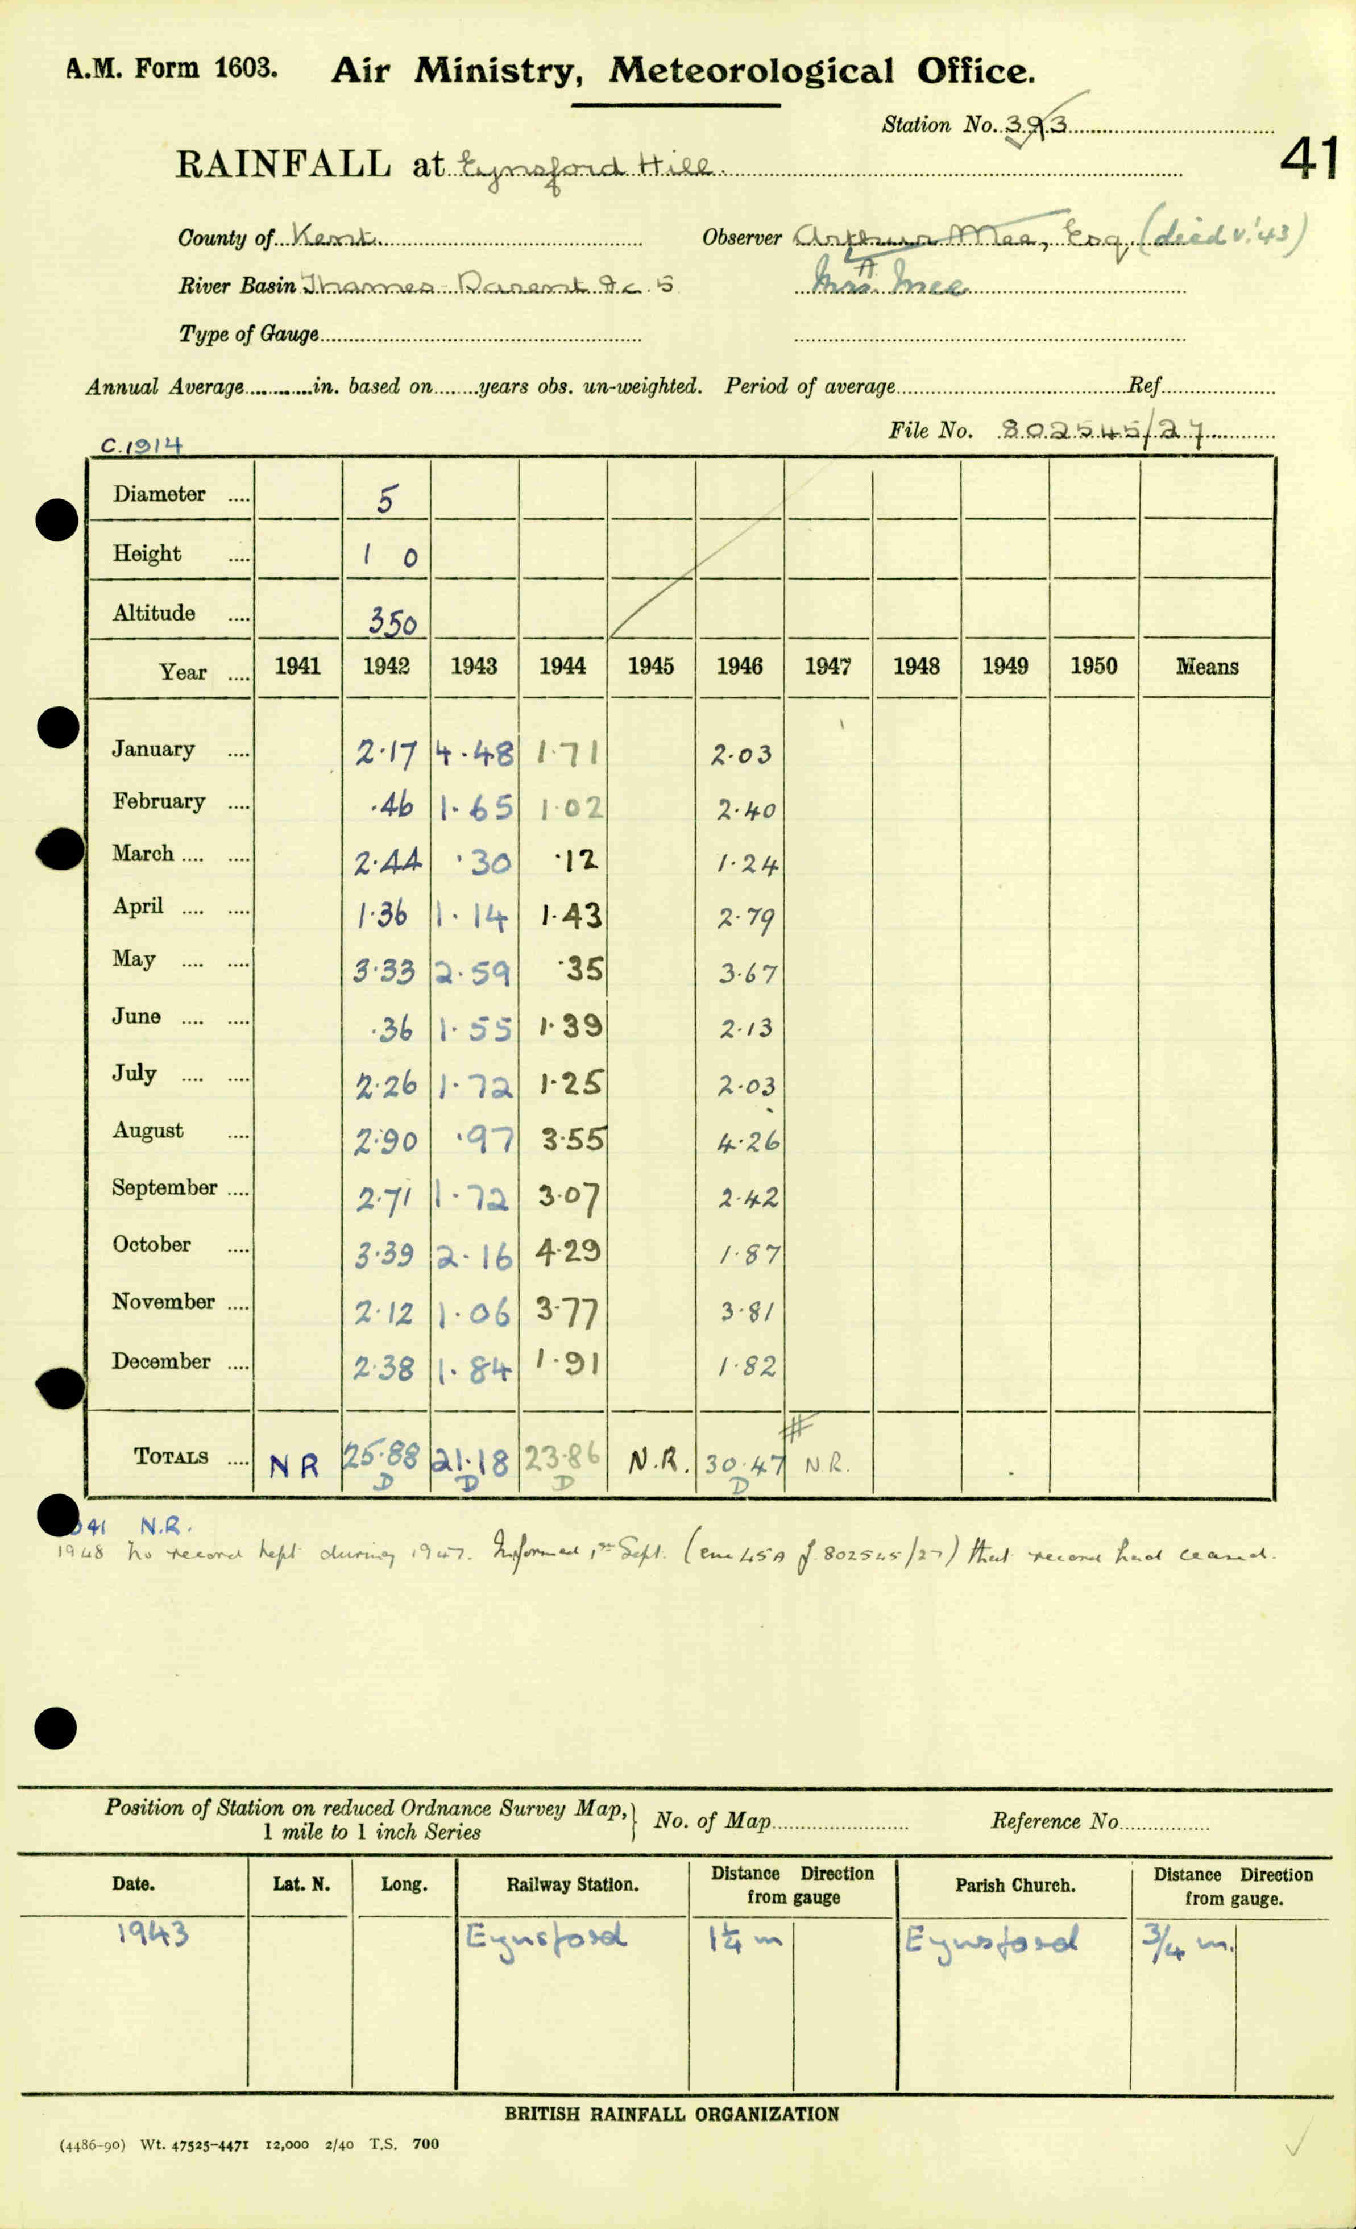 A.M. Form 1603. Air Ministry, Meteorological Office.
Station No. 393
41
RAINFALL at Eynsford Hill.
County of Kent. Observer Arthur Mee, Esq. (died v.'43)
River Basin Thames - Darent &c 5 Mrs A Mee
Type of Gauge
Annual Average in. based on years obs. un-weighted. Period of average Ref.
File No. 802545/27
C.1914
Diameter .... 5
Height .... 1 0
Altitude .... 350
Year .... 1941 1942 1943 1944 1945 1946 1947 1948 1949 1950 Means
January .... 2.17 4.48 1.71 2.03
February .... .46 1.65 1.02 2.40
March .... .... 2.44 .30 .12 1.24
April .... .... 1.36 1.14 1.43 2.79
May .... .... 3.33 2.59 .35 3.67
June .... .... .36 1.55 1.39 2.13
July .... .... 2.26 1.72 1.25 2.03
August .... 2.90 .97 3.55 4.26
September .... 2.71 1.72 3.07 2.42
October .... 3.39 2.16 4.29 1.87
November .... 2.12 1.06 3.77 3.81
December .... 2.38 1.84 1.91 1.82
TOTALS .... NR 25.88 21.18 23.86 N.R. 30.47 # N.R.
D D D D
41 N.R.
1948 No record kept during 1947. Informed 1st Sept. (enc 45A of 802545/27) that record had ceased.
Position of Station on reduced Ordnance Survey Map, 1 mile to 1 inch Series } No. of Map Reference No.
Date. Lat. N. Long. Railway Station. Distance Direction from gauge Parish Church. Distance Direction from gauge.
1943 Eynsford 1¼ m Eynsford 3/4 m.
BRITISH RAINFALL ORGANIZATION
(4486-90) Wt. 47525-4471 12,000 2/40 T.S. 700